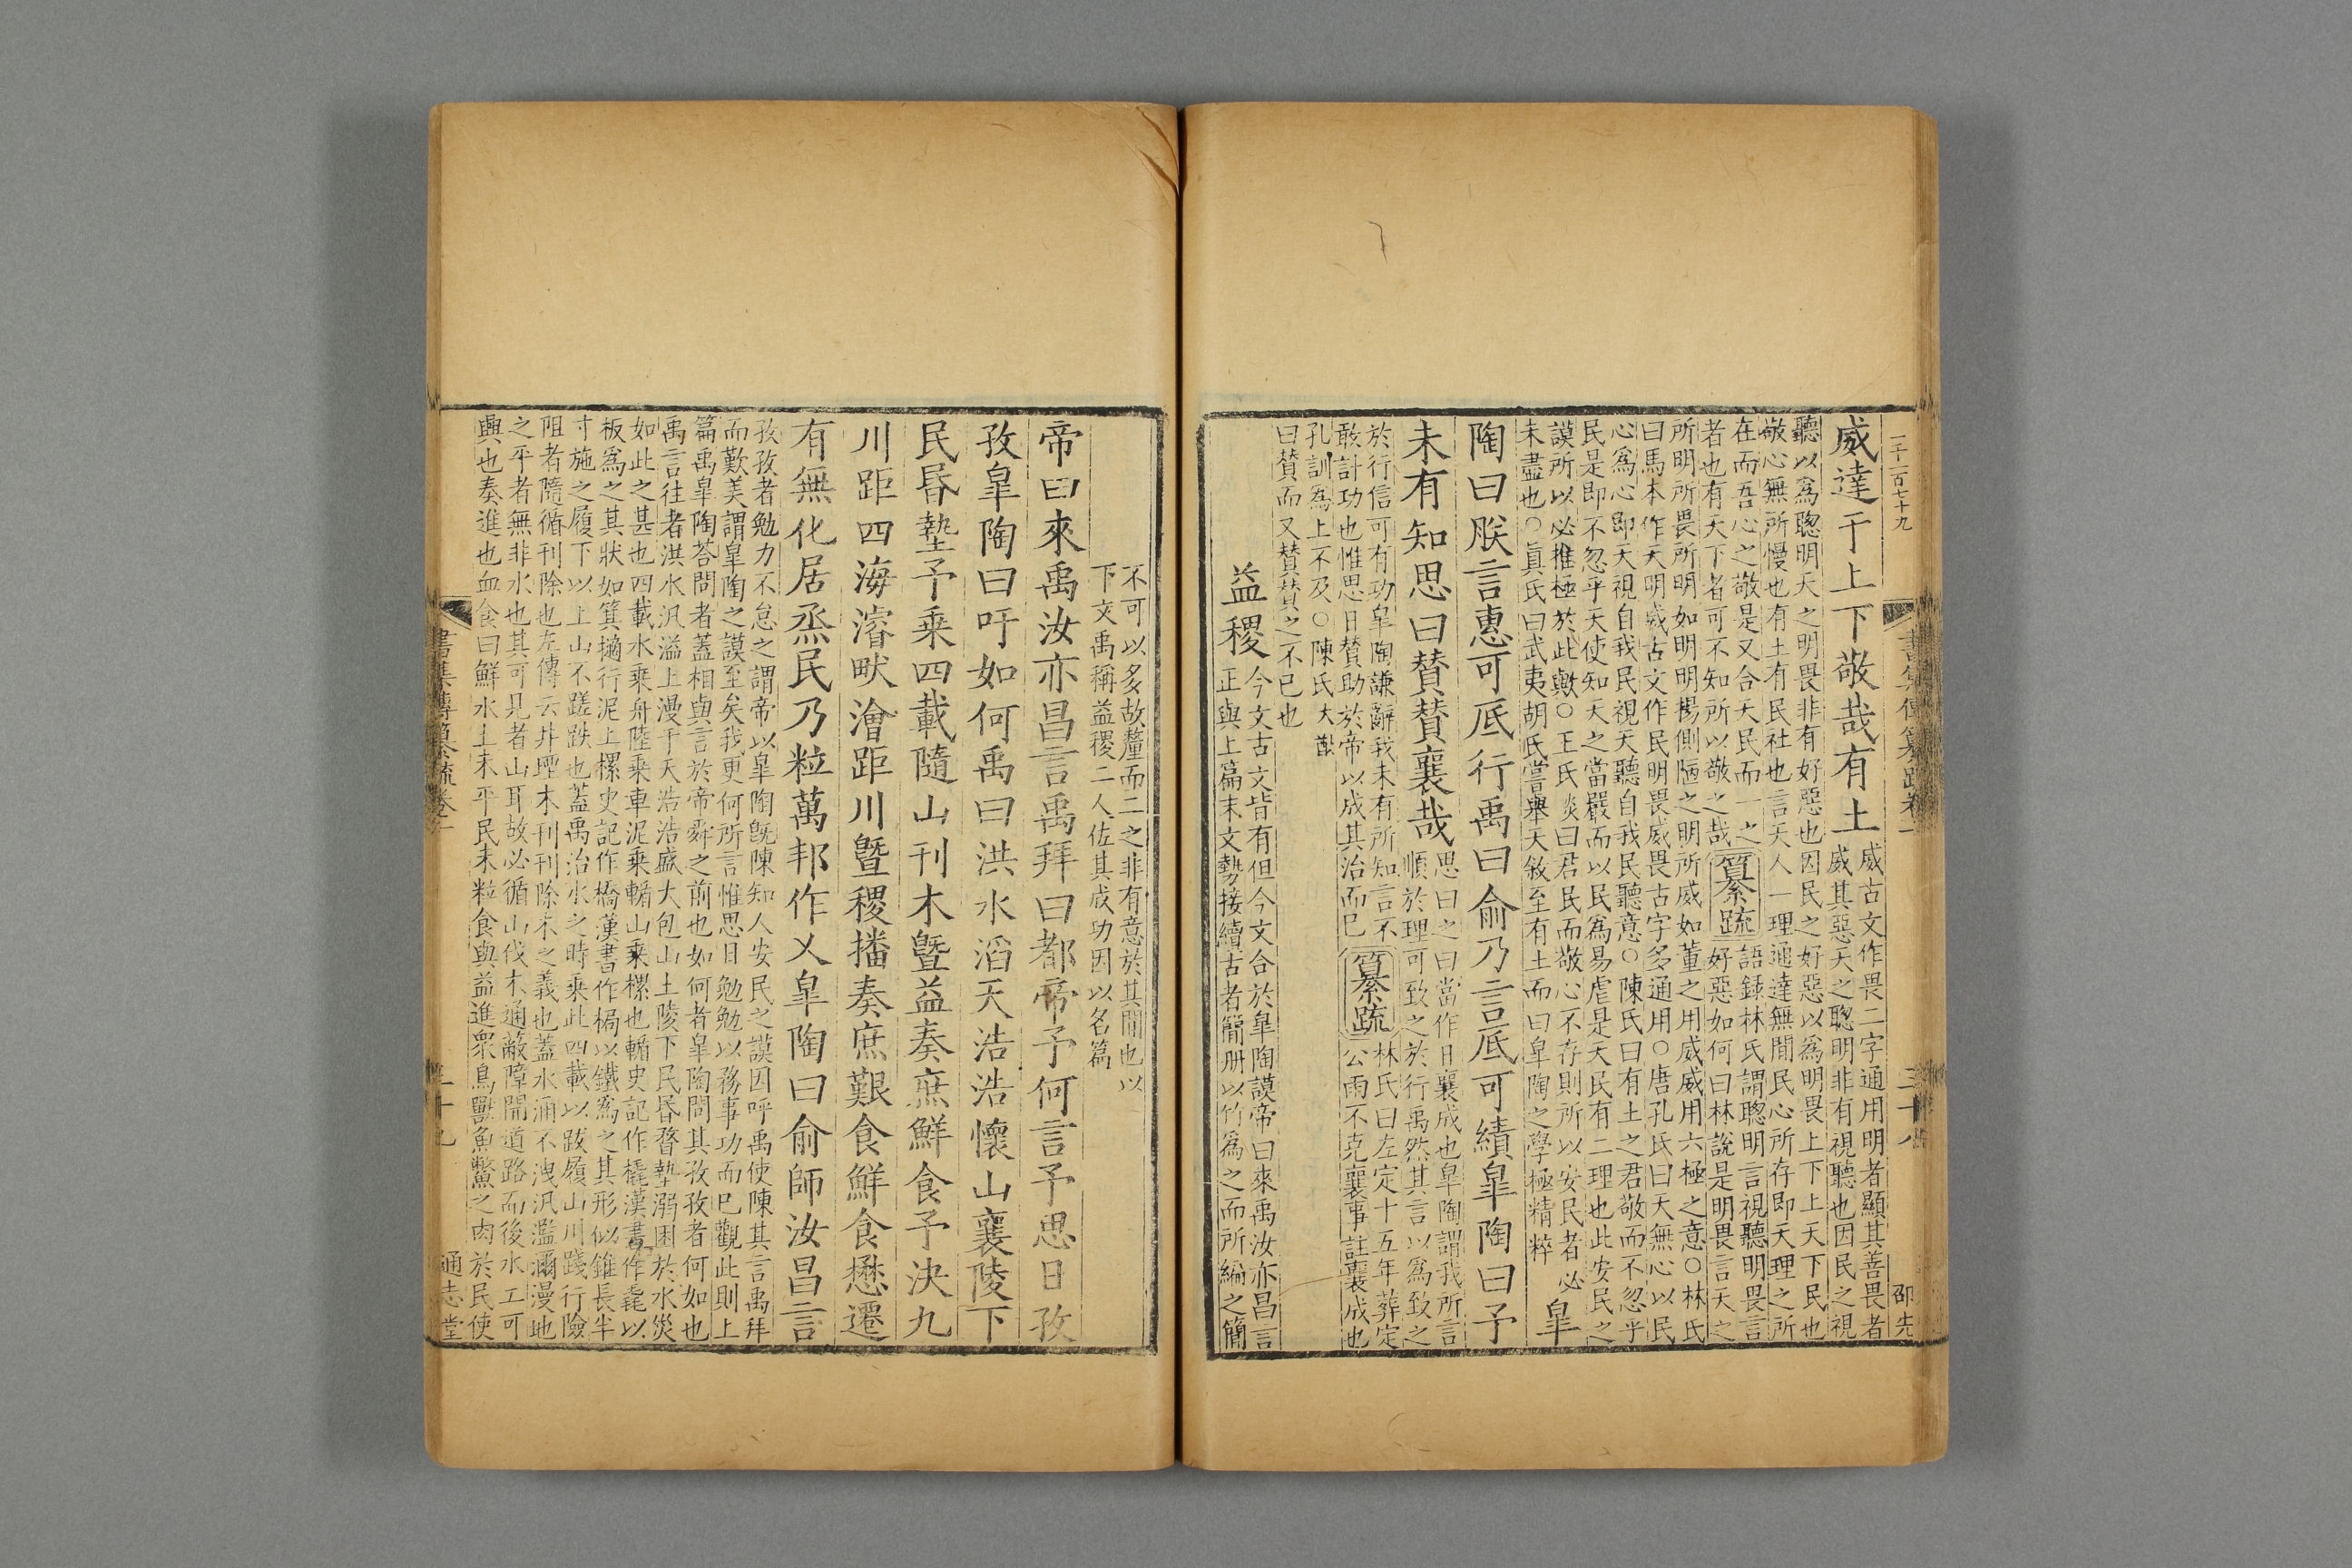 威達于上下敬哉有土
威古文作畏二字通用明者顯其善畏者
威其惡天之聰明非有視聽也因民之視
聽以爲聰明天之明畏非有好惡也因民之好惡以爲明畏上下上天下民也
敬心無所慢也有土有民社也言天人一理通達無間民心所存即天理之所
在而吾心之敬是又合天民而一之
者也有天下者可不知所以敬之哉
纂疏
語錄林氏謂聰明言視聽明畏言
好惡如何曰林說是明畏言天之
所明所畏所明如明明揚側陋之明所威如董之用威威用六極之意○林氏
曰馬本作天明威古文作民明畏威畏古字多通用○唐孔氏曰天無心以民
心爲心即天視自我民視天聽自我民聽意○陳氏曰有土之君敬而不忽乎
民是即不忽乎天使知天之當嚴而以民爲易虐是天民有二理也此安民之
謨所以必推極於此歟○王氏炎曰君民而敬心不存則所以安民者必
未盡也○眞氏曰武夷胡氏嘗舉天敘至有土而曰皐陶之學極精粹
皐
陶曰朕言惠可厎行禹曰俞乃言厎可績皐陶曰予
未有知思曰贊贊襄哉
思曰之曰當作日襄成也皐陶謂我所言
順於理可致之於行禹然其言以爲致之
於行信可有功皐陶謙辭我未有所知言不
敢計功也惟思日贊助於帝以成其治而已
纂疏
林氏曰左定十五年葬定
公雨不克襄事註襄成也
孔訓爲上不及○陳氏大猷
曰贊而又贊贊之不已也
益稷
今文古文皆有但今文合於皐陶謨帝曰來禹汝亦昌言
正與上篇末文勢接續古者簡册以竹爲之而所編之簡
不可以多故釐而二之非有意於其間也以
下文禹稱益稷二人佐其成功因以名篇
帝曰來禹汝亦昌言禹拜曰都帝予何言予思日孜
孜皐陶曰吁如何禹曰洪水滔天浩浩懷山襄陵下
民昬墊予乘四載隨山刊木曁益奏庶鮮食予決九
川距四海濬畎澮距川曁稷播奏庶艱食鮮食懋遷
有無化居烝民乃粒萬邦作乂皐陶曰俞師汝昌言
孜孜者勉力不怠之謂帝以皐陶旣陳知人安民之謨因呼禹使陳其言禹拜
而歎美謂皐陶之謨至矣我更何所言惟思日勉勉以務事功而巳觀此則上
篇禹皐陶荅問者蓋相與言於帝舜之前也如何者皐陶問其孜孜者何如也
禹言往者洪水汎溢上漫于天浩浩盛大包山上陵下民昬瞀墊溺困於水災
如此之甚也四載水乘舟陸乘車泥乘輴山乘樏也輴史記作橇漢書作毳以
板爲之其狀如箕擿行泥上樏史記作橋漢書作梮以鐵爲之其形似錐長半
寸施之履下以上山不蹉跌也蓋禹治水之時乘此四載以跋履山川踐行險
阻者隨循刊除也左傳云井堙木刊刊除木之義也蓋水涌不洩汎濫瀰漫地
之平者無非水也其可見者山耳故必循山伐木通蔽障開道路而後水工可
興也奏進也血食曰鮮水土未平民未粒食與益進衆鳥獸魚鱉之肉於民使
書集傳纂疏卷一
通志堂